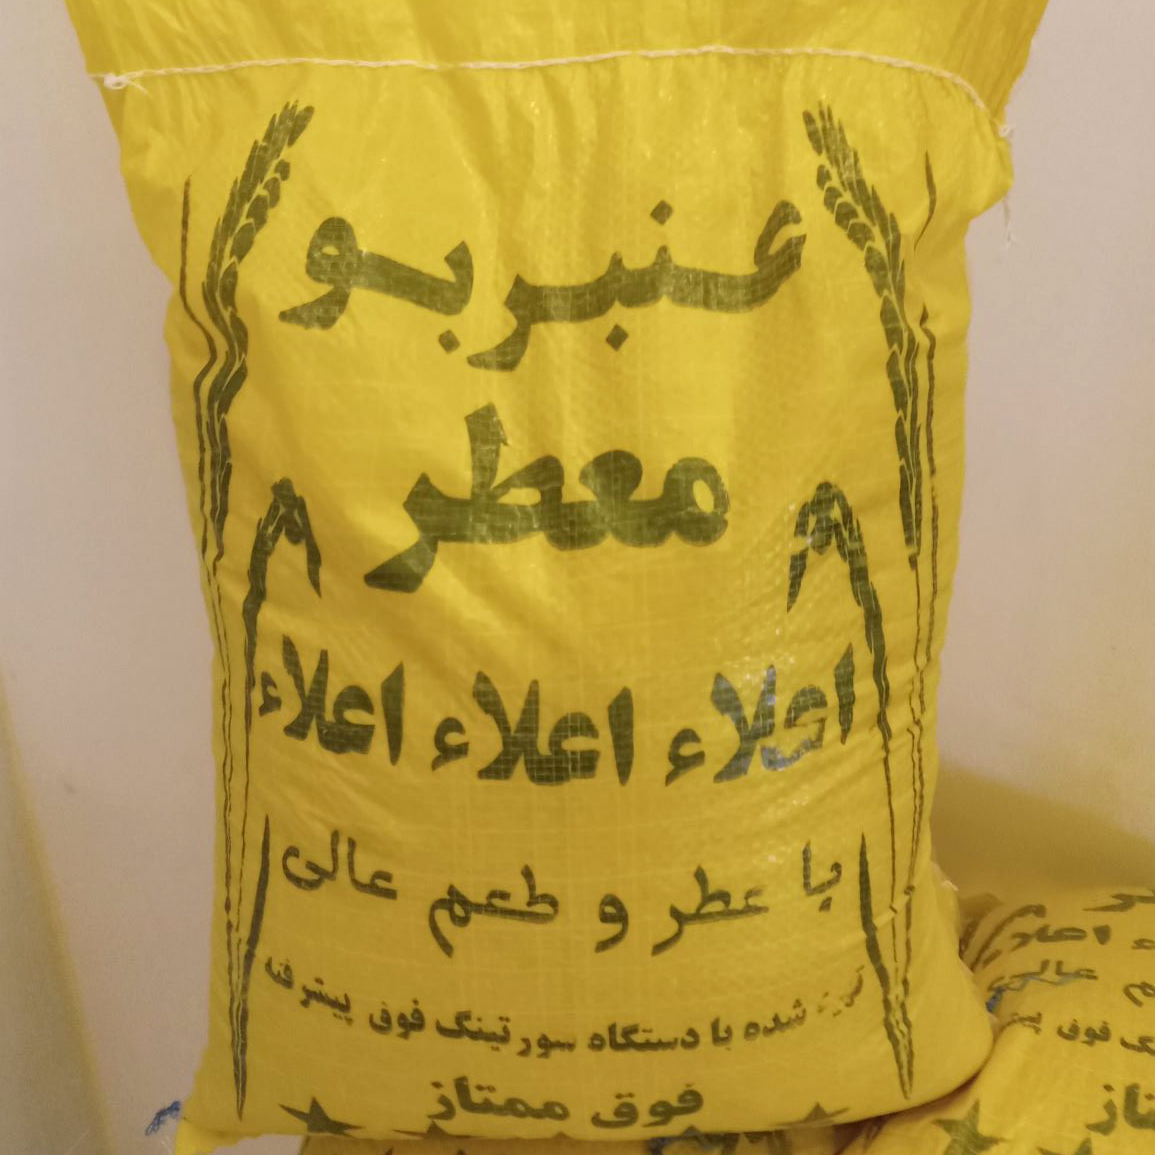 عنبربو
معطر
اعلاء اعلاء اعلاء
با عطر و طعم عالی
شده با دستگاه سورتینگ فوق پیشرفته
فوق ممتاز
اعلاء
م عالی
فوق